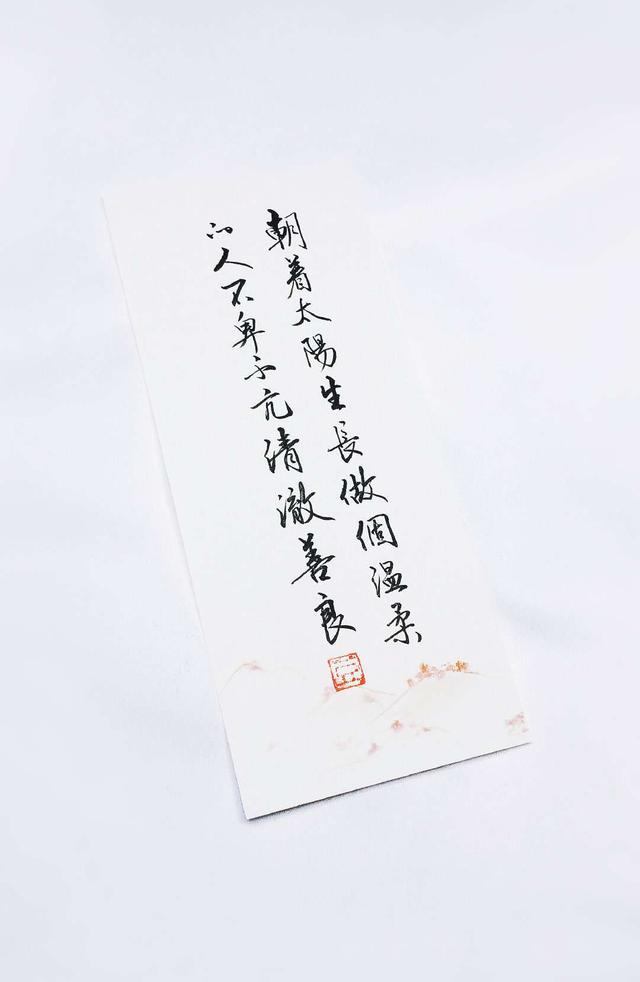 朝着太陽生長做個温柔
的人不卑不亢清澈善良